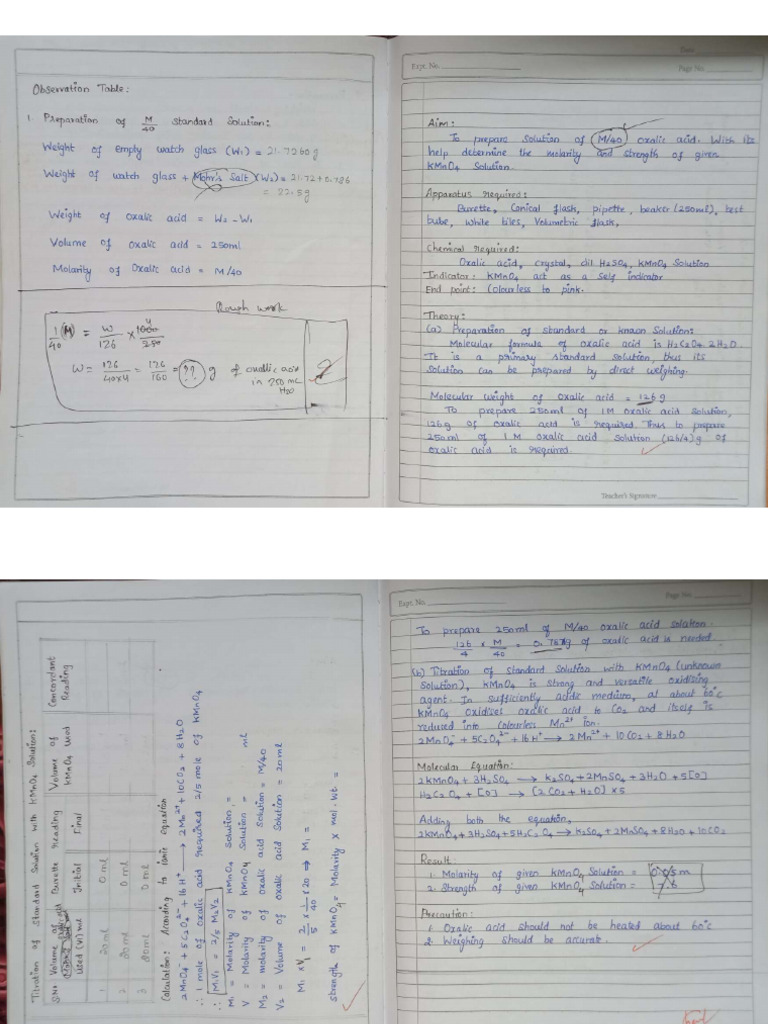 Observation Table:
1. Preparation of M/40 standard Solution:
Weight of empty watch glass (W1) = 21.7260g
Weight of watch glass + Mohr's Salt (W2) = 21.72+0.786
= 22.5g
Weight of oxalic acid = W2 - W1
Volume of Oxalic acid = 250ml
Molarity of Oxalic acid = M/40
Rough work
1/40 (M) = W/126 × 1000/250 4
W = 126/40×4 = 126/160 = ?? g of oxallic acid
in 250 mL
H2O
Expt. No.
Date
Page No.
Aim:
To prepare solution of M/40 oxalic acid. With its
help determine the molarity and strength of given
KMnO4 Solution.
Apparatus required:
Burette, Conical flash, pipette, beaker (250ml), test
tube, while tiles, Volumetric flash,
Chemical Required:
Oxalic acid, crystal, dil H2SO4, KMnO4 Solution
Indicator: KMnO4 act as a self indicator
End point: Colourless to pink.
Theory:
(a) Preparation of standard or known Solution:
Molecular formula of oxalic acid is H2C2O4.2H2O.
It is a primary standard solution, thus its
solution can be prepared by direct weighing.
Molecular weight of Oxalic acid = 126g
To prepare 250ml of 1M oxalic acid Solution,
126g of oxalic acid is required. Thus to prepare
250ml of 1 M oxalic acid solution (126/4)g of
oxalic acid is required.
Teacher's Signature
Titration of Standard Solution with KMnO4 Solution:
S.No Volume of Used (V1) ml
Burette Reading
Initial Final
Volume of KMnO4 used
Concordant Reading
1 20ml 0 ml
2 20ml 0 ml
3 20ml 0 ml
Calculation: According to Ionic equation
2MnO4- + 5C2O4 2- + 16H+ → 2Mn2+ + 10CO2 + 8H2O
∴ 1 mole of oxalic acid required 2/5 mole of KMnO4
∴ M1V1 = 2/5 M2V2
M1 = Molarity of KMnO4 Solution =
V = Molarity of KMnO4 Solution = ml
M2 = molarity of oxalic acid Solution = M/40
V2 = Volume of oxalic acid Solution = 20ml
M1 × V1 = 2/5 × 1/40 × 20 ⇒ M1 =
strength of KMnO4 = Molarity × mol. wt. =
Expt. No.
Page No.
To prepare 250ml of M/40 oxalic acid solution.
126/4 × M/40 = 0.787g of oxalic acid is needed.
(b) Titration of Standard Solution with KMnO4 (unknown
Solution), KMnO4 is strong and versatile oxidizing
agent. In sufficiently acidic medium, at about 60°c
KMnO4 Oxidises oxalic acid to CO2 and itself is
reduced into Colourless Mn2+ ion.
2MnO4- + 5C2O4 2- + 16H+ → 2Mn2+ + 10CO2 + 8H2O
Molecular Equation:
2KMnO4 + 3H2SO4 → K2SO4 + 2MnSO4 + 3H2O + 5[O]
H2C2O4 + [O] → [2CO2 + H2O] × 5
Adding both the equation,
2KMnO4 + 3H2SO4 + 5H2C2O4 → K2SO4 + 2MnSO4 + 8H2O + 10CO2
Result:
1. Molarity of given KMnO4 Solution =
2. Strength of given KMnO4 Solution =
Precaution:
1. Oxalic acid should not be heated about 60°c
2. Weighing should be accurate.